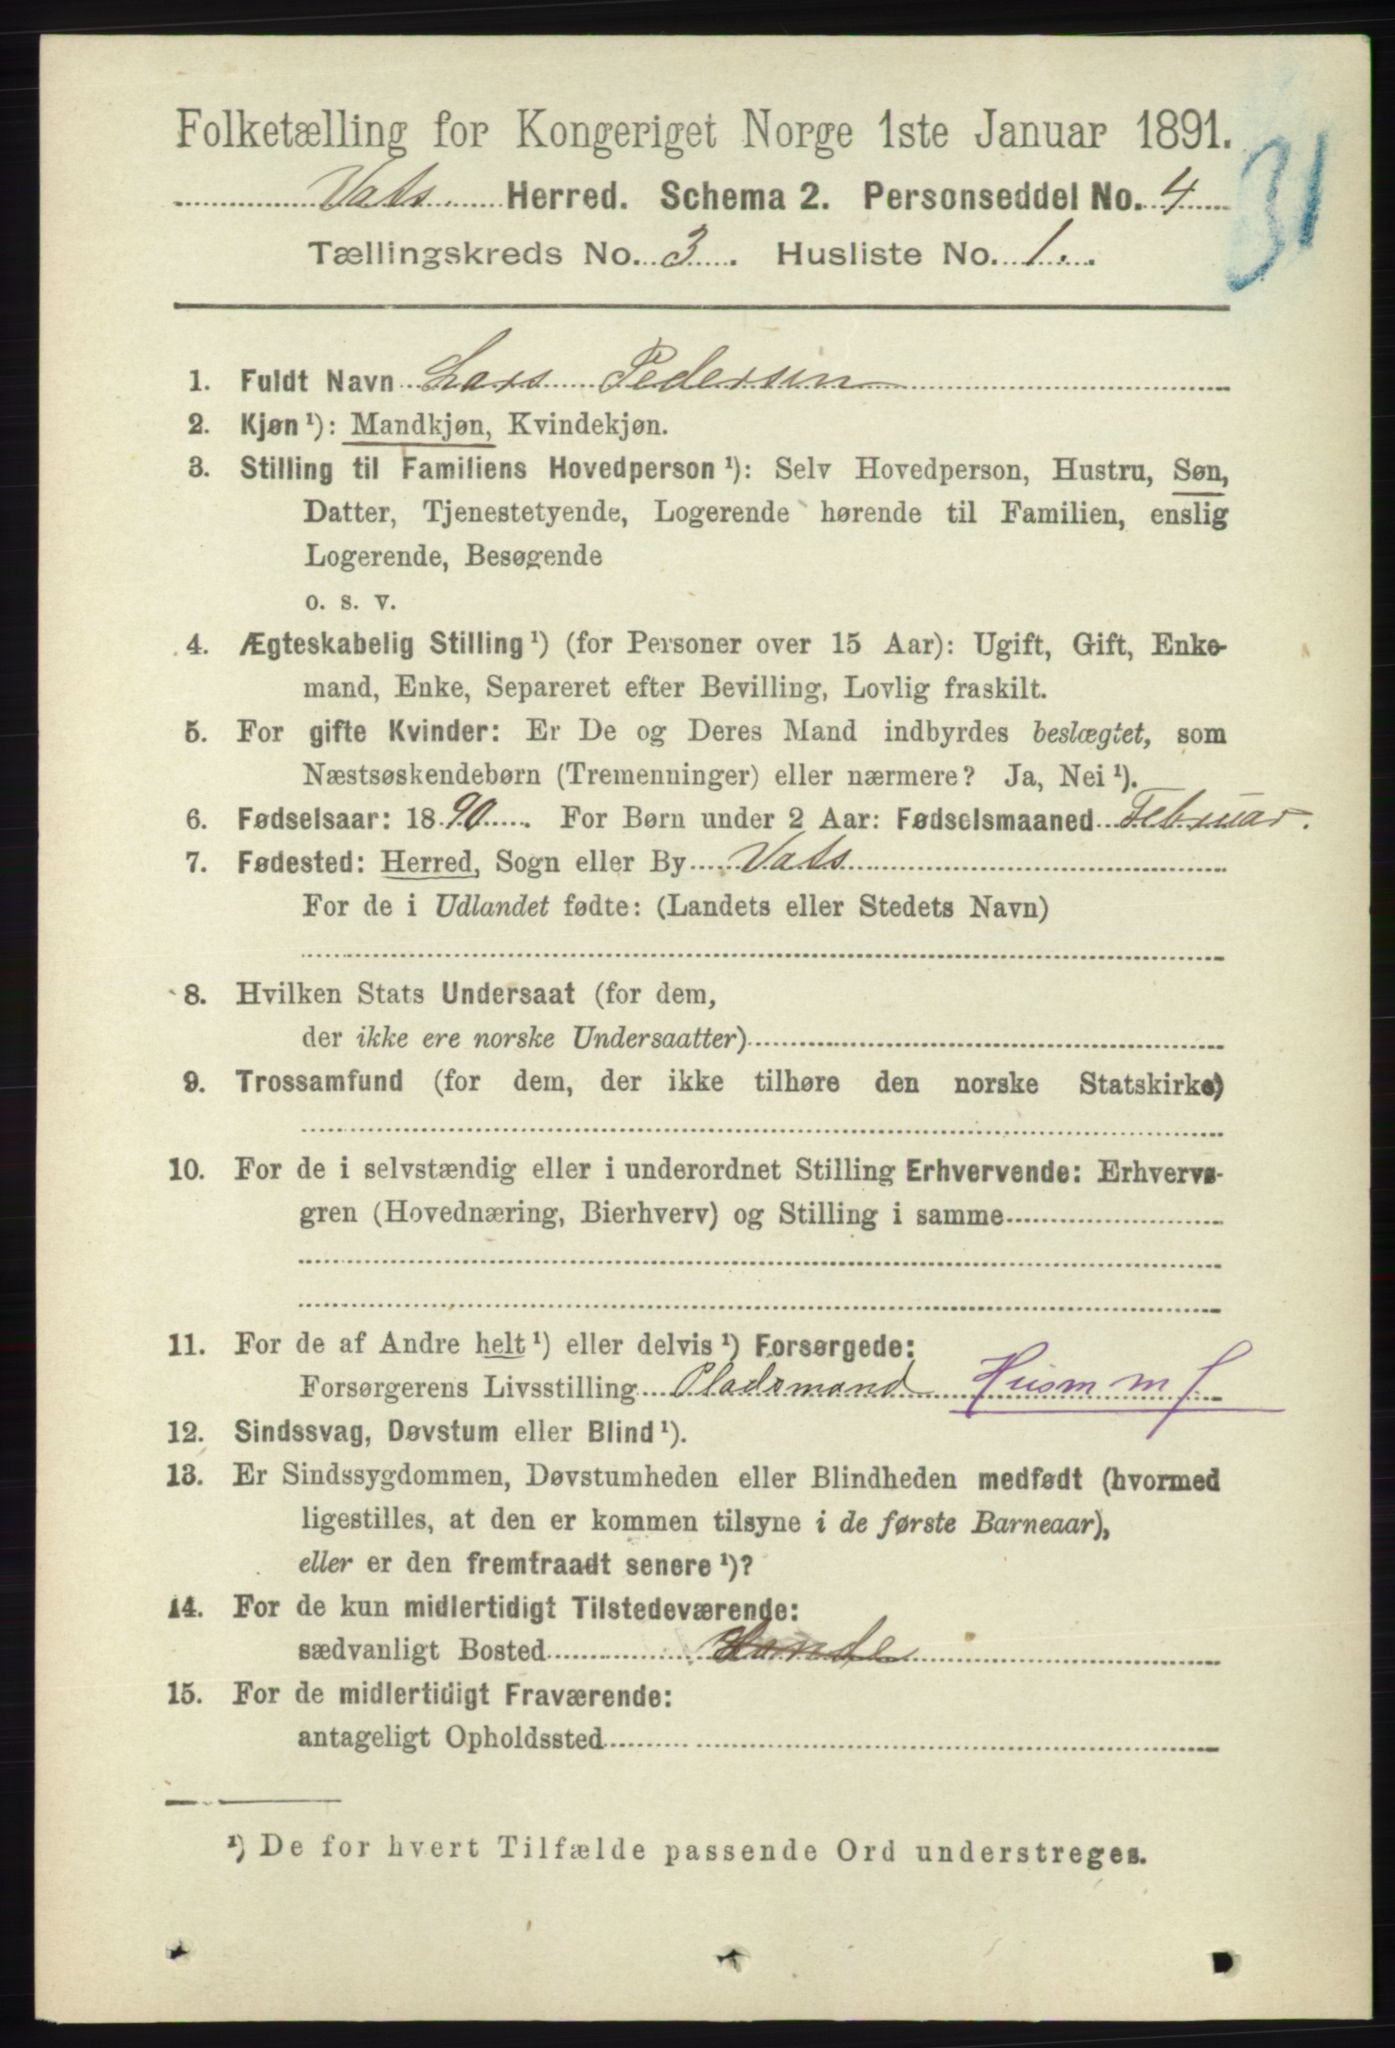 Folketælling for Kongeriget Norge 1ste Januar 1891.
31
Vats Herred. Schema 2. Personseddel No. 4
Tællingskreds No. 3. Husliste No. 1.
1. Fuldt Navn Lars Pedersen
2. Kjøn ¹): Mandkjøn, Kvindekjøn.
3. Stilling til Familiens Hovedperson ¹): Selv Hovedperson, Hustru, Søn,
Datter, Tjenestetyende, Logerende hørende til Familien, enslig
Logerende, Besøgende
o. s. v.
4. Ægteskabelig Stilling ¹) (for Personer over 15 Aar): Ugift, Gift, Enke-
mand, Enke, Separeret efter Bevilling, Lovlig fraskilt.
5. For gifte Kvinder: Er De og Deres Mand indbyrdes beslægtet, som
Næstsøskendebørn (Tremenninger) eller nærmere? Ja, Nei ¹).
6. Fødselsaar: 1890. For Børn under 2 Aar: Fødselsmaaned Februar.
7. Fødested: Herred, Sogn eller By Vats
For de i Udlandet fødte: (Landets eller Stedets Navn)
8. Hvilken Stats Undersaat (for dem,
der ikke ere norske Undersaatter)
9. Trossamfund (for dem, der ikke tilhøre den norske Statskirke)
10. For de i selvstændig eller i underordnet Stilling Erhvervende: Erhvervs-
gren (Hovednæring, Bierhverv) og Stilling i samme
11. For de af Andre helt ¹) eller delvis ¹) Forsørgede:
Forsørgerens Livsstilling Pladsmand Husm m J
12. Sindssvag, Døvstum eller Blind ¹).
13. Er Sindssygdommen, Døvstumheden eller Blindheden medfødt (hvormed
ligestilles, at den er kommen tilsyne i de første Barneaar),
eller er den fremtraadt senere ¹)?
14. For de kun midlertidigt Tilstedeværende:
sædvanligt Bosted
15. For de midlertidigt Fraværende:
antageligt Opholdssted
¹) De for hvert Tilfælde passende Ord understreges.